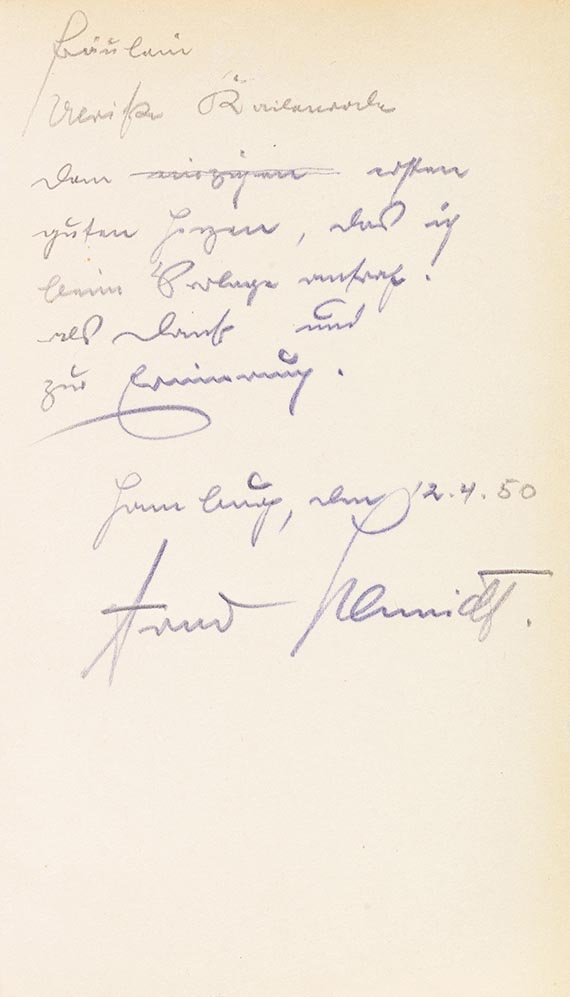 Fräulein
Ulrike
dem ~~einzigen~~ ersten
guten Herzen, das ich
beim Verlage antraf.
als Dank und
zur Erinnerung.
Hamburg, den 12.4.50
Arno Schmidt.